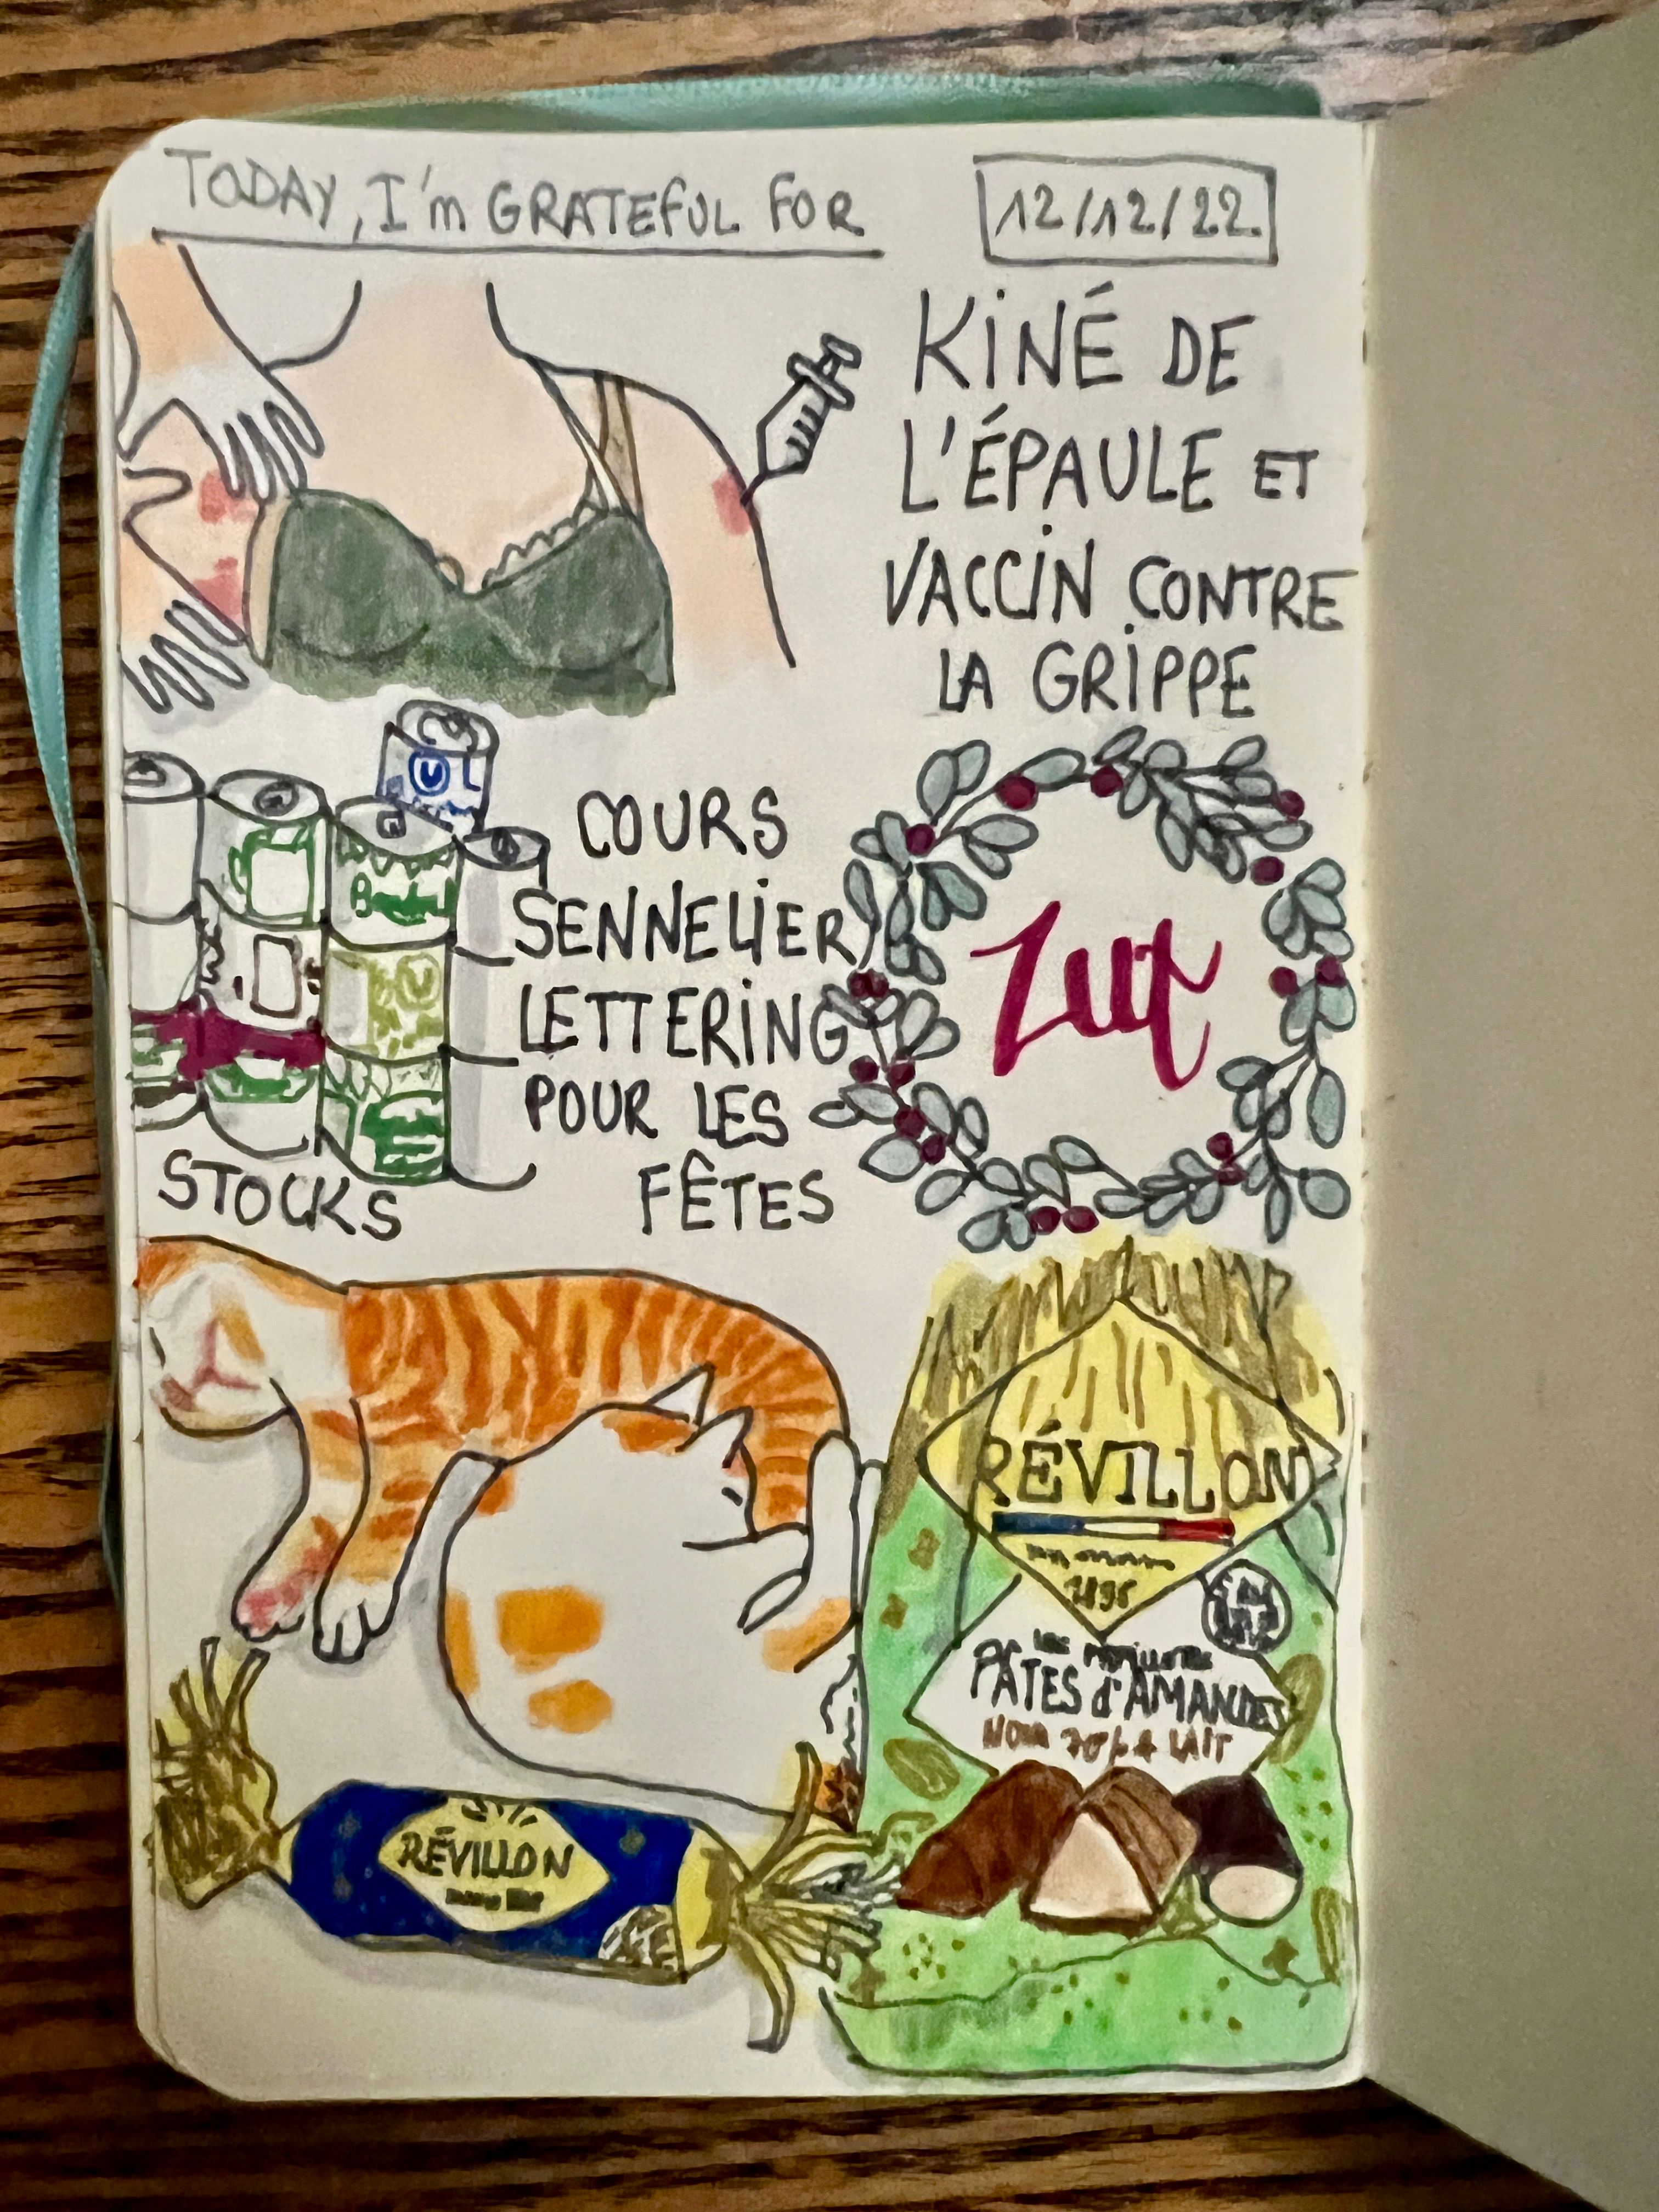 TODAY, I'm GRATEFUL FOR
12/12/22
KINÉ DE
L'ÉPAULE ET
VACCIN CONTRE
LA GRIPPE
U
COURS
SENNELIER
LETTERING
POUR LES
FÊTES
Zut
U
STOCKS
RÉVILLON
PÂTES d'AMANDES
NOIR 70% & LAIT
RÉVILLON